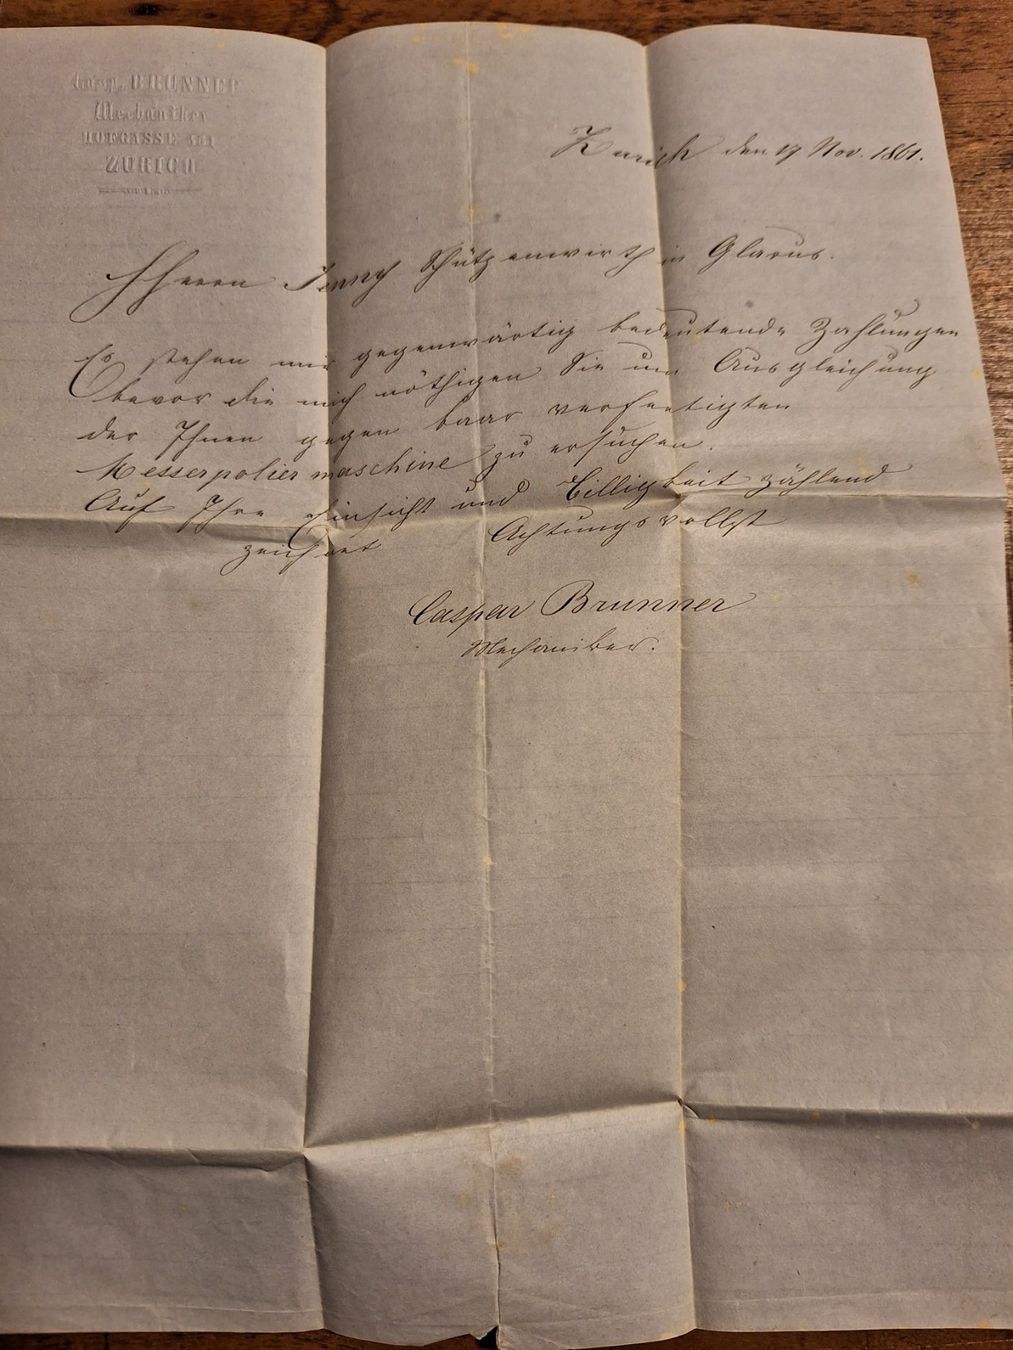 Casp. BRUNNER
Mechaniker
HOFGASSE
ZÜRICH
Zürich den 19 Nov. 1861.
HHerrn Jenny Schützenwirth in Glarus.
Es stehen mir gegenwärtig bedeutende Zahlungen
bevor die mich nöthigen Sie um Ausgleichung
der Ihnen gegen baar verfertigten
Messerpoliermaschine zu ersuchen.
Auf Ihre Einsicht und Billigkeit zählend
zeichnet Achtungsvollst
Caspar Brunner
Mechaniker.